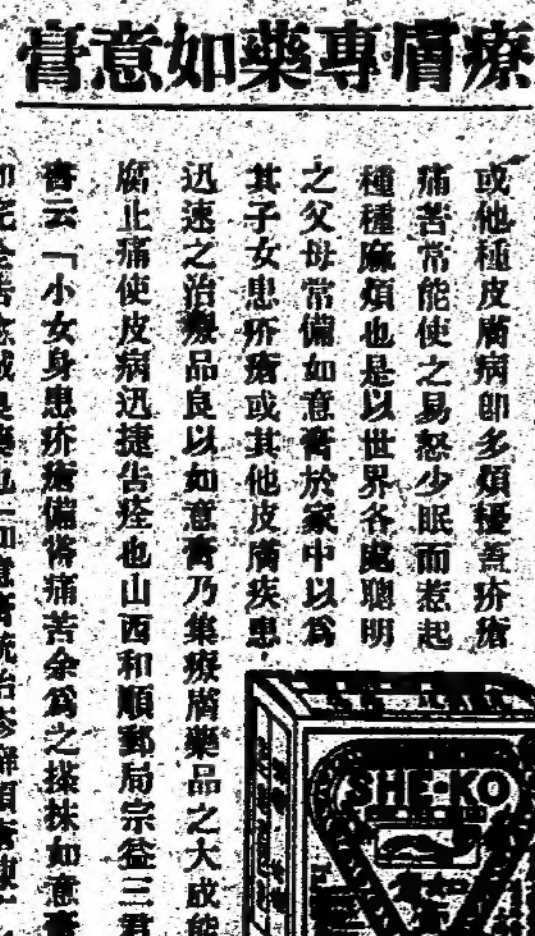 療膚專藥如意膏
或他種皮膚病卽多煩擾蓋疥瘡
痛苦常能使之易怒少眠而惹起
種種麻煩也是以世界各處聰明
之父母常備如意膏於家中以爲
其子女患疥瘡或其他皮膚疾患
迅速之治療品良以如意膏乃集療膚藥品之大成能
腐止痛使皮病迅捷告痊也山西和順郵局宗益三君
書云「小女身患疥瘡備嘗痛苦余爲之搽抹如意膏
完全告愈誠良藥也」如意膏統治
SHE-KO